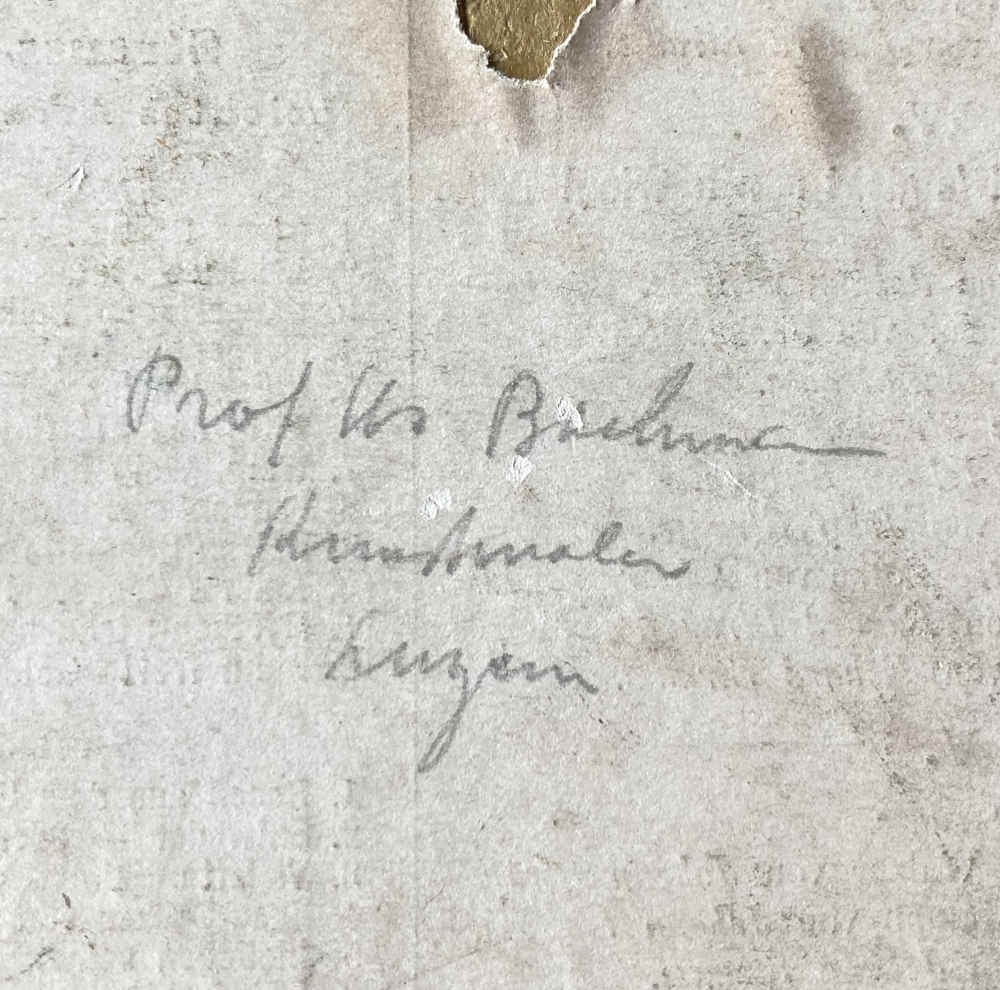 Prof Hs Bachmann
Kunstmaler
Luzern